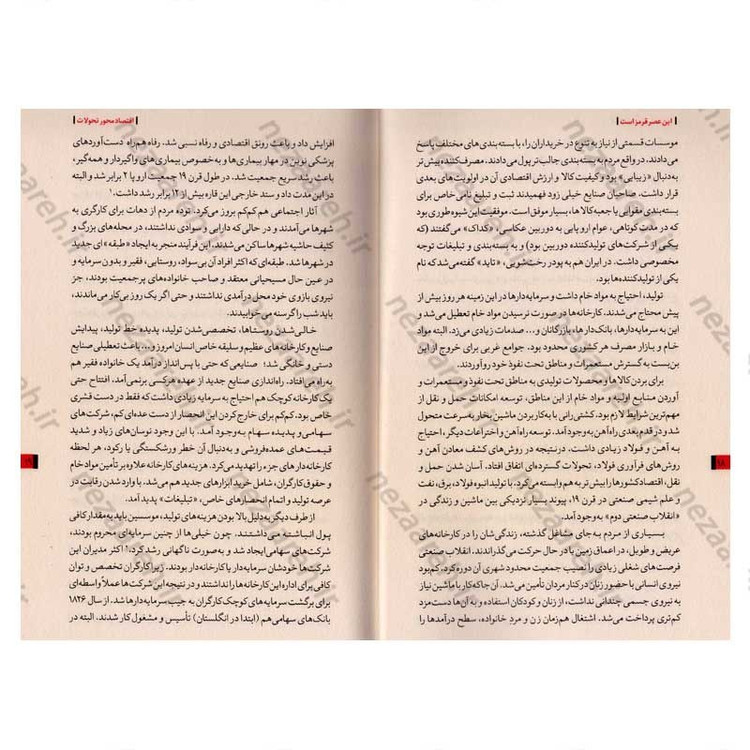 این عصر قرمز است
موسسات قسمتی از نیاز به تنوع در خریداران را، با بسته‌بندی‌های مختلف پاسخ
می‌دادند. در واقع مردم به بسته‌بندی جالب‌تر پول می‌دادند. مصرف‌کننده بیش‌تر
به‌دنبال «زیبایی» بود و کیفیت کالا و ارزش اقتصادی آن در اولویت‌های بعدی
قرار داشت. صاحبان صنایع خیلی زود فهمیدند ثبت و تبلیغ نامی خاص برای
بسته‌بندی مقوایی یا جعبه کالاها، بسیار موفق است. موفقیت این شیوه‌طوری بود
که در مدت کوتاهی، عوام اروپایی به دوربین عکاسی، «کداک» می‌گفتند (که
یکی از شرکت‌های تولیدکننده دوربین بود) و به بسته‌بندی و تبلیغات توجه
مخصوصی داشت. در ایران هم به پودر رخت‌شویی، «تاید» گفته می‌شد که نام
یکی از تولیدکننده‌ها بود.
تولید، احتیاج به مواد خام داشت و سرمایه‌دارها در این زمینه هر روز بیش از
پیش محتاج می‌شدند. کارخانه‌ها در صورت نرسیدن مواد خام تعطیل می‌شد و
این به سرمایه‌دارها، بانک‌دارها، بازرگانان و... صدمات زیادی می‌زد. البته مواد
خام و بازار مصرف هر کشوری محدود بود. جوامع غربی برای خروج از این
بن‌بست به گسترش مستعمرات و مناطق تحت نفوذ خود روآوردند.
برای بردن کالاها و محصولات تولیدی به مناطق تحت نفوذ و مستعمرات و
آوردن منابع اولیه و مواد خام از این مناطق، توسعه امکانات حمل و نقل از
مهم‌ترین شرایط لازم بود. کشتی‌رانی با به‌کار بردن ماشین بخار به سرعت متحول
شد و در قدم بعدی راه‌آهن به‌وجود آمد. توسعه راه‌آهن و اختراعات دیگر، احتیاج
به آهن و فولاد زیادی داشت. درنتیجه در روش‌های کشف معادن آهن و
روش‌های فرآوری فولاد، تحولات گسترده‌ای اتفاق افتاد. آسان شدن حمل و
نقل، اقتصاد کشورها را بیش‌تر به هم وابسته می‌کرد. با تولید انبوه فولاد، برق، نفت
و علم شیمی صنعتی در قرن ۱۹، پیوند بسیار نزدیکی بین ماشین و زندگی در
«انقلاب صنعتی دوم» به‌وجود آمد.
بسیاری از مردم به‌جای مشاغل گذشته، زندگی‌شان را در کارخانه‌های
عریض و طویل، در اعماق زمین یا در حال حرکت می‌گذراندند. انقلاب صنعتی
فرصت‌های شغلی زیادی را نصیب جمعیت محدود شهری آن دوره کرد. کمبود
نیروی انسانی با حضور زنان در کنار مردان تأمین می‌شد. آن جا که کار با ماشین نیاز
به نیروی جسمی چندانی نداشت، از زنان و کودکان استفاده و به آن‌ها دست‌مزد
کم‌تری پرداخت می‌شد. اشتغال هم‌زمان زن و مرد خانواده، سطح درآمدها را
۱۸
اقتصاد محور تحولات
افزایش داد و باعث رونق اقتصادی و رفاه نسبی شد. رفاه همراه دست‌آوردهای
پزشکی نوین در مهار بیماری‌ها و به‌خصوص بیماری‌های واگیردار و همه‌گیر،
باعث رشد سریع جمعیت شد. در طول قرن ۱۹ جمعیت اروپا ۲ برابر شد و البته
در این مدت واردات و سند خارجی این قاره بیش از ۱۲ برابر رشد داشت.۱
آثار اجتماعی هم کم‌کم بروز می‌کرد. توده مردم از دهات برای کارگری به
شهرها می‌آمدند و در حالی که دارایی و سوادی نداشتند، در محله‌های بزرگ و
کثیف حاشیه شهرها ساکن می‌شدند. این فرآیند منجر به ایجاد «طبقه» ای جدید
در شهرها شد. طبقه‌ای که اکثر افراد آن بی‌سواد، روستایی، فقیر و بدون سرمایه و
در عین حال مسیحیانی معتقد و صاحب خانواده‌های پرجمعیت بودند، جز
نیروی بازوی خود محل درآمدی نداشتند و حتی اگر یک روز بی‌کار می‌ماندند،
باید شب را گرسنه می‌خوابیدند.
خالی‌شدن روستاها، تخصصی‌شدن تولید، پدیده خط تولید، پیدایش
صنایع و کارخانه‌های عظیم و سلیقه خاص انسان امروز و... باعث تعطیلی صنایع
دستی و خانگی شد؛ صنایعی که حتی با پس‌انداز درآمد یک خانواده فقیر هم
به راه می‌افتاد. راه‌اندازی صنایع جدید از عهده هرکسی برنمی‌آمد. افتتاح حتی
یک کارخانه کوچک هم احتیاج به سرمایه زیادی داشت که فقط در دست قشری
خاص بود. کم‌کم برای خارج کردن این انحصار از دست عده‌ای کم، شرکت‌های
سهامی و پدیده سهام به‌وجود آمد. با این وجود نوسان‌های زیاد و شدید
قیمت‌های عمده‌فروشی و به‌دنبال آن خطر ورشکستگی یا رکود، هر لحظه
کارخانه‌دارهای جزء را تهدید می‌کرد. هزینه‌های کارخانه علاوه بر تأمین مواد خام
و حقوق کارگران، شامل خرید ابزارهای جدید هم می‌شد. با وارد شدن رقابت در
عرصه تولید و اتمام انحصارهای خاص، «تبلیغات» پدید آمد.
از طرف دیگر به‌دلیل بالا بودن هزینه‌های تولید، موسسین باید به‌مقدار کافی
پول انباشته می‌داشتند. چون خیلی‌ها از چنین سرمایه‌ای محروم بودند،
شرکت‌های سهامی ایجاد شد و به‌صورت ناگهانی رشد کرد.۲ اکثر مدیران این
شرکت‌ها خودشان سرمایه‌دار یا کارخانه‌دار بودند. زیرا کارگران تخصص و توان
کافی برای اداره این کارخانه‌ها را نداشتند و در نتیجه این شرکت‌ها عملاً واسطه‌ای
برای برگشت سرمایه‌های کوچک کارگران به جیب سرمایه‌دارها شد. از سال ۱۸۲۶
بانک‌های سهامی هم (ابتدا در انگلستان) تأسیس و مشغول کار شدند. البته در
۱۹
nezaareh.ir